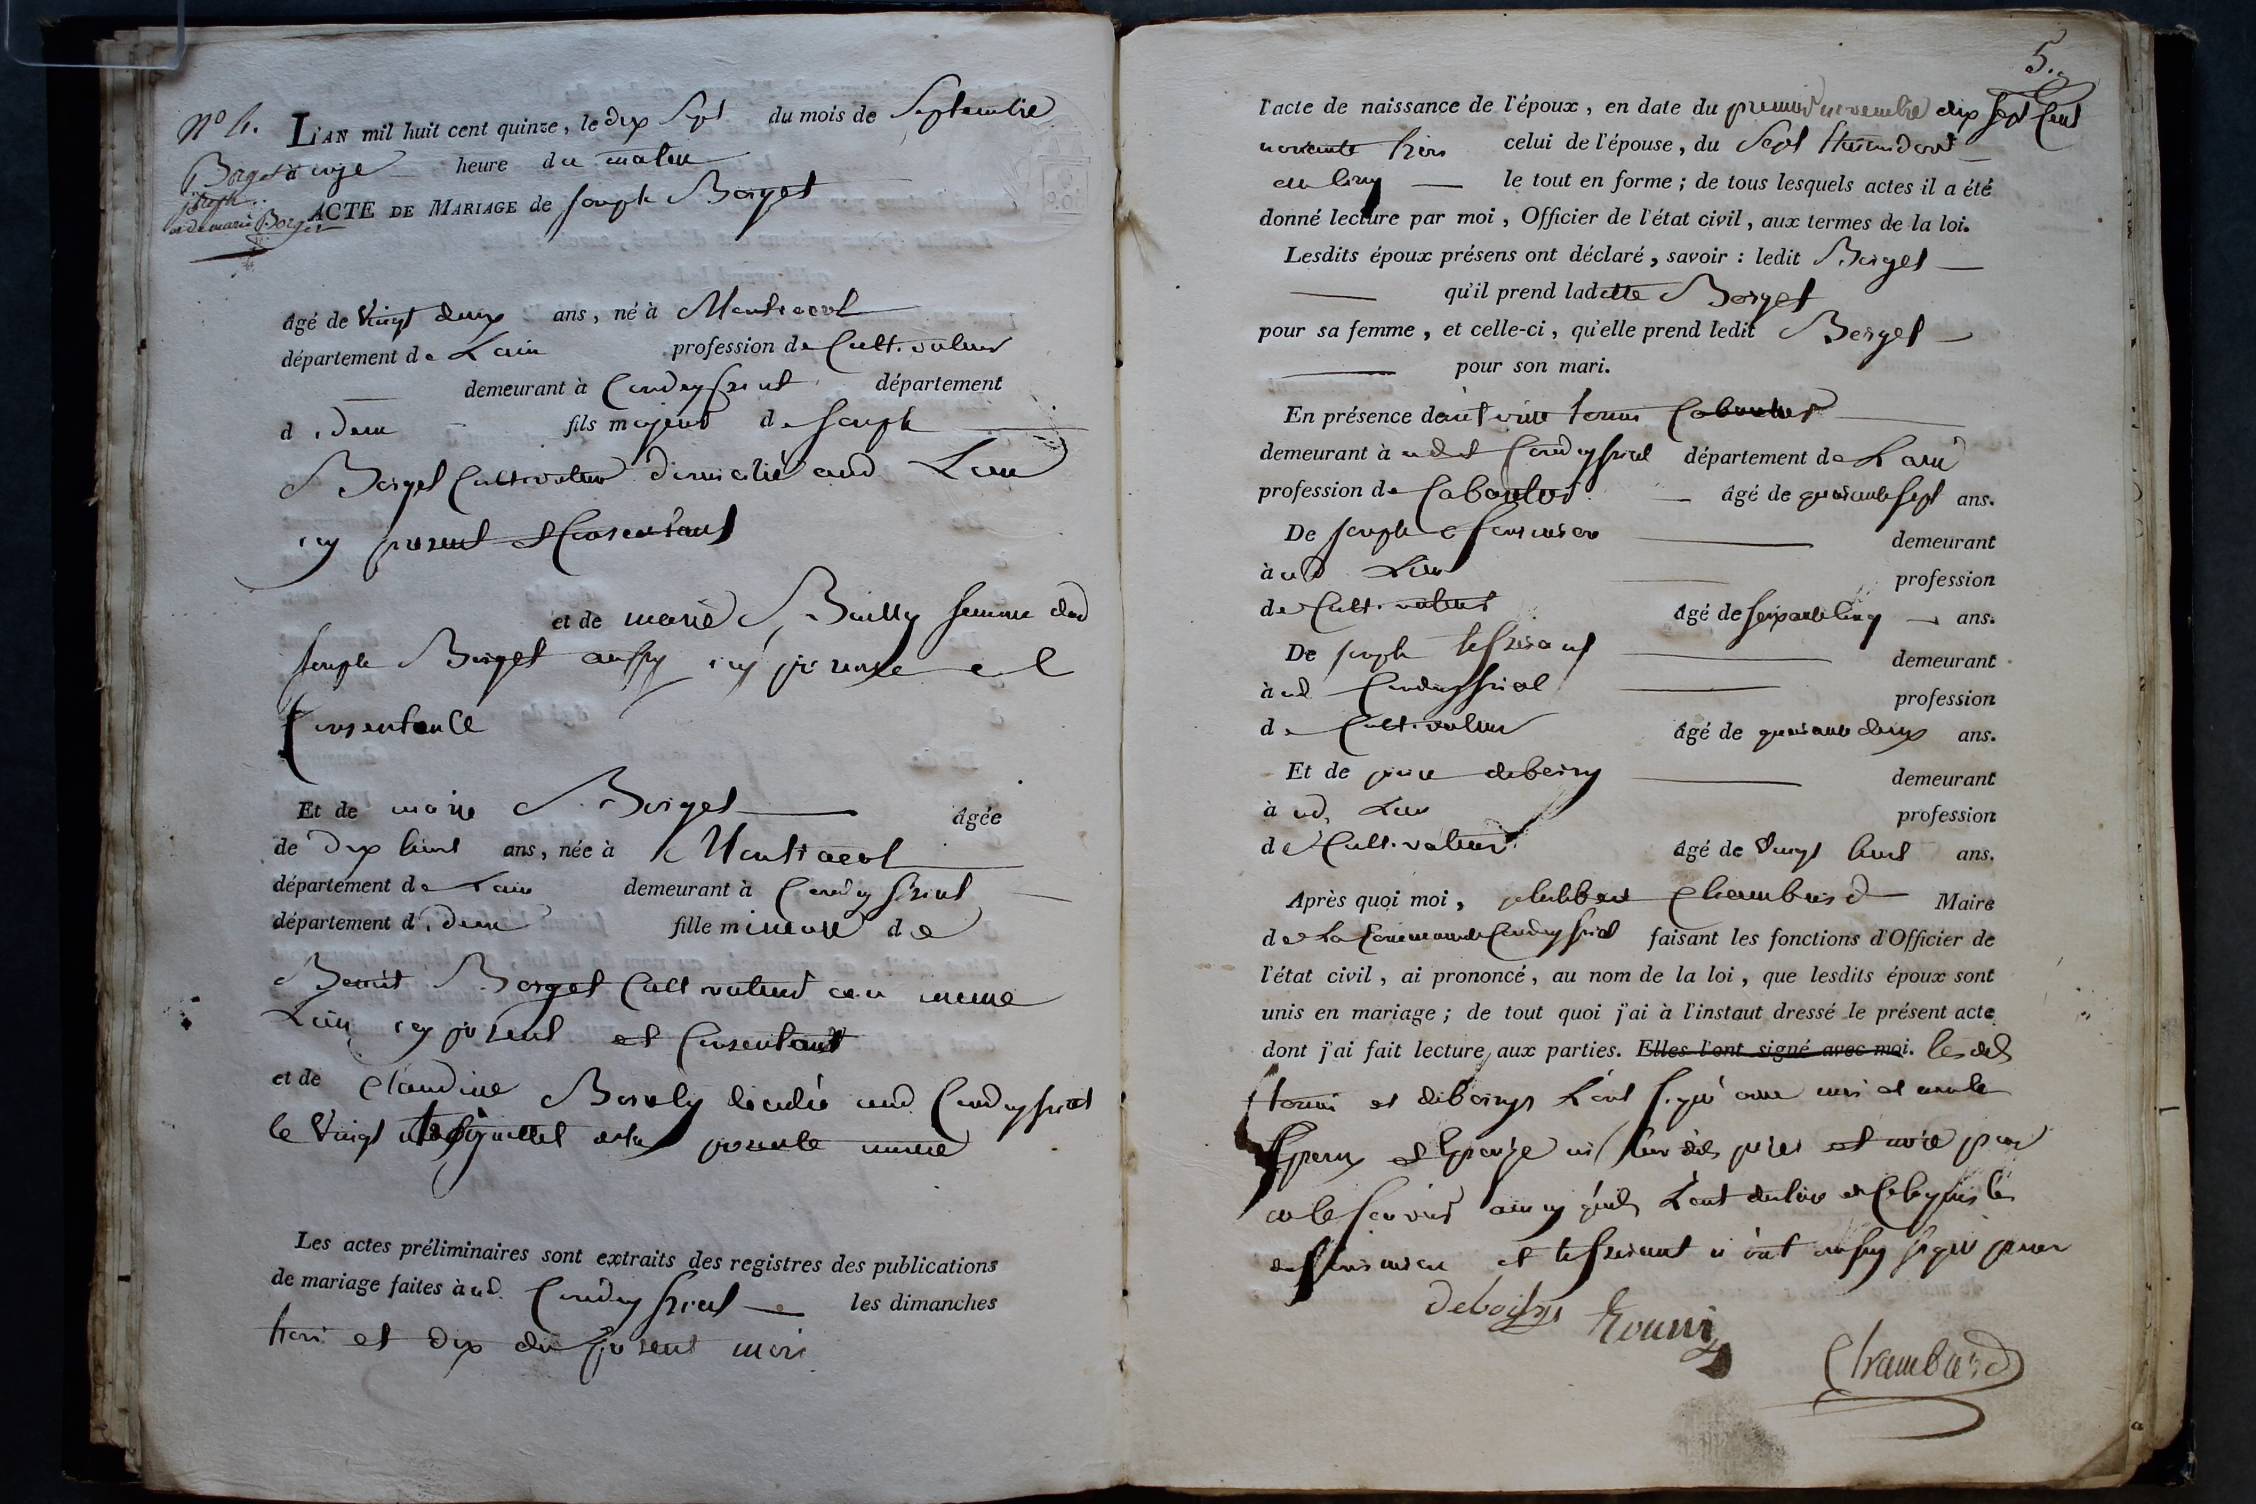 N° 4.
L'AN mil huit cent quinze, le dix Sept du mois de Septembre
Borget à onze heure du matin
joseph
et de marie Borget
ACTE DE MARIAGE de joseph Borget
âgé de Vingt deux ans, né à Montracol
département de Lain profession de Cultivateur
demeurant à Condeyssiat département
d idem fils majeur de joseph
Borget Cultivateur domicilié aud Lieu
icy present et Consentant
et de marie Bailly femme dud
joseph Borget aussy icy presente et
Consentante
Et de marie Borget âgée
de Dix huit ans, née à Montracol
département de Lain demeurant à Condeyssiat
département d idem fille mineure de
Benoit Borget Cultivateur au meme
Lieu icy present et Consentant
et de Claudine décédée aud Condeyssiat
le Vingt juillet année
Les actes préliminaires sont extraits des registres des publications
de mariage faites à ud. Condeyssiat les dimanches
trois et dix du present mois
5.
l'acte de naissance de l'époux, en date du premier novembre dix sept Cent
nonante trois celui de l'épouse, du Sept thermidor
an cinq le tout en forme ; de tous lesquels actes il a été
donné lecture par moi, Officier de l'état civil, aux termes de la loi.
Lesdits époux présens ont déclaré, savoir : ledit Borget
qu'il prend ladette Borget
pour sa femme, et celle-ci, qu'elle prend ledit Borget
pour son mari.
En présence de antoine tonni Cabaretier
demeurant à udit Condeyssiat département de Lain
profession de Cabaretier âgé de quarante sept ans.
De joseph demeurant
à ud Lieu profession
de Cultivateur âgé de soixante Cinq ans.
De joseph teffinant demeurant
à ud Condeyssiat profession
de Cultivateur âgé de quarante deux ans.
Et de pierre deboissy demeurant
à ud Lieu profession
de Cultivateur âgé de Vingt huit ans.
Après quoi moi, philibert Chambard Maire
de La Commune de Condeyssiat faisant les fonctions d'Officier de
l'état civil, ai prononcé, au nom de la loi, que lesdits époux sont
unis en mariage ; de tout quoi j'ai à l'instaut dressé le présent acte
dont j'ai fait lecture aux parties. Elles l'ont signé avec moi. lesdits
tonni et deboissy L'ont signé avec moi et non les
Epoux et Epouse ni leur dits pères et mère pour
ne le scavoir ainsy qu'ils L'ont déclaré
et teffinant n'ont aussy signé pour
deboissy tonni
Chambard